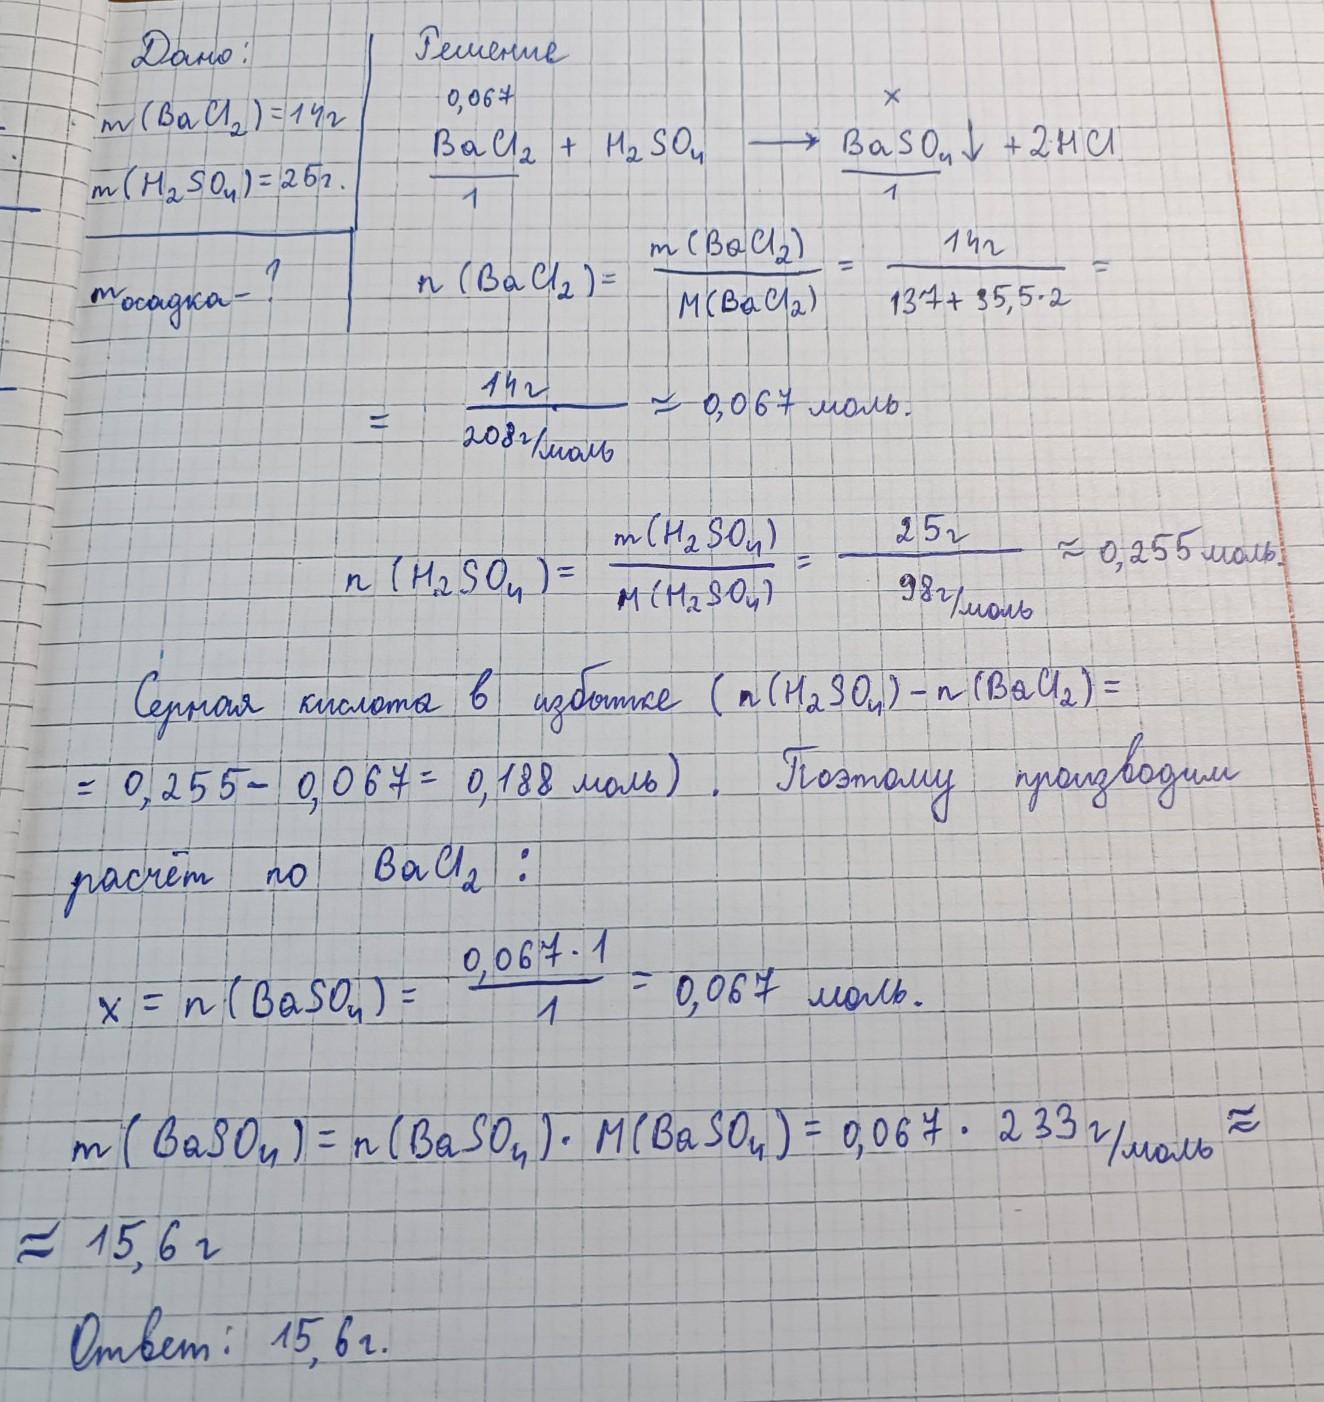 Дано:
m(BaCl₂)=14г
m(H₂SO₄)=25г.
mосадка-?
Решение
0,067 x
BaCl₂ + H₂SO₄ ⟶ BaSO₄↓ + 2HCl
1 1
n(BaCl₂)= m(BaCl₂)/M(BaCl₂) = 14г/137+35,5·2 =
= 14г/208г/моль ≈ 0,067 моль.
n(H₂SO₄)= m(H₂SO₄)/M(H₂SO₄) = 25г/98г/моль ≈ 0,255 моль.
Серная кислота в избытке (n(H₂SO₄)-n(BaCl₂)=
= 0,255- 0,067= 0,188 моль). Поэтому производим
расчёт по BaCl₂:
x = n(BaSO₄)= 0,067·1/1 = 0,067 моль.
m(BaSO₄)=n(BaSO₄)·M(BaSO₄)=0,067·233г/моль ≈
≈ 15,6г
Ответ: 15,6г.